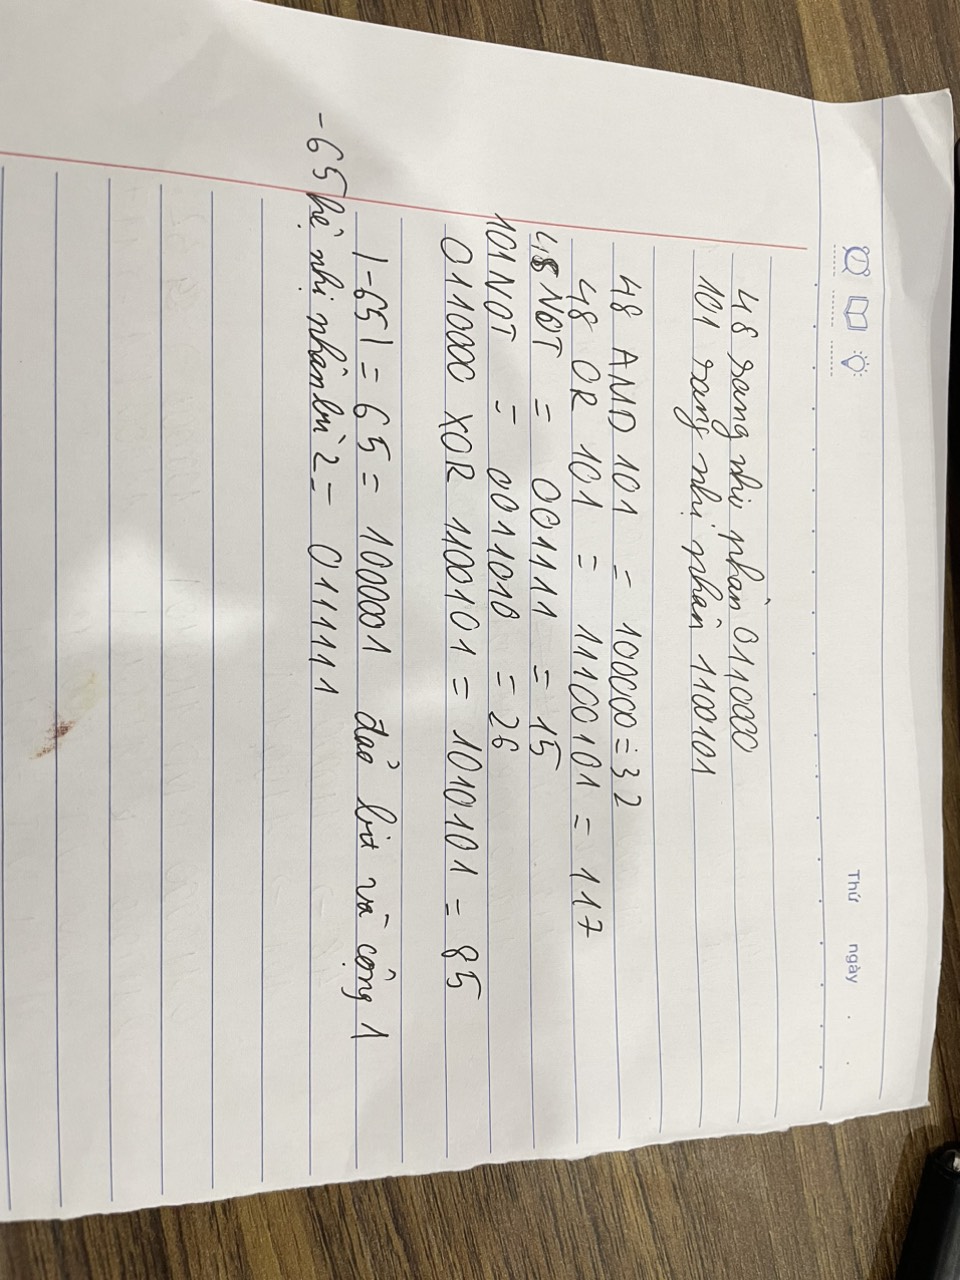 Thứ ngày . .
48 sang nhi phân 0110000
101 sang nhị phân 1100101
48 AND 101 = 100000 = 32
48 OR 101 = 1110101 = 117
48 NOT = 001111 = 15
101 NOT = 0011010 = 26
0110000 XOR 1100101 = 1010101 = 85
|-65| = 65 = 1000001 đảo bit và cộng 1
-65 hệ nhị phân bù 2 = 0111111